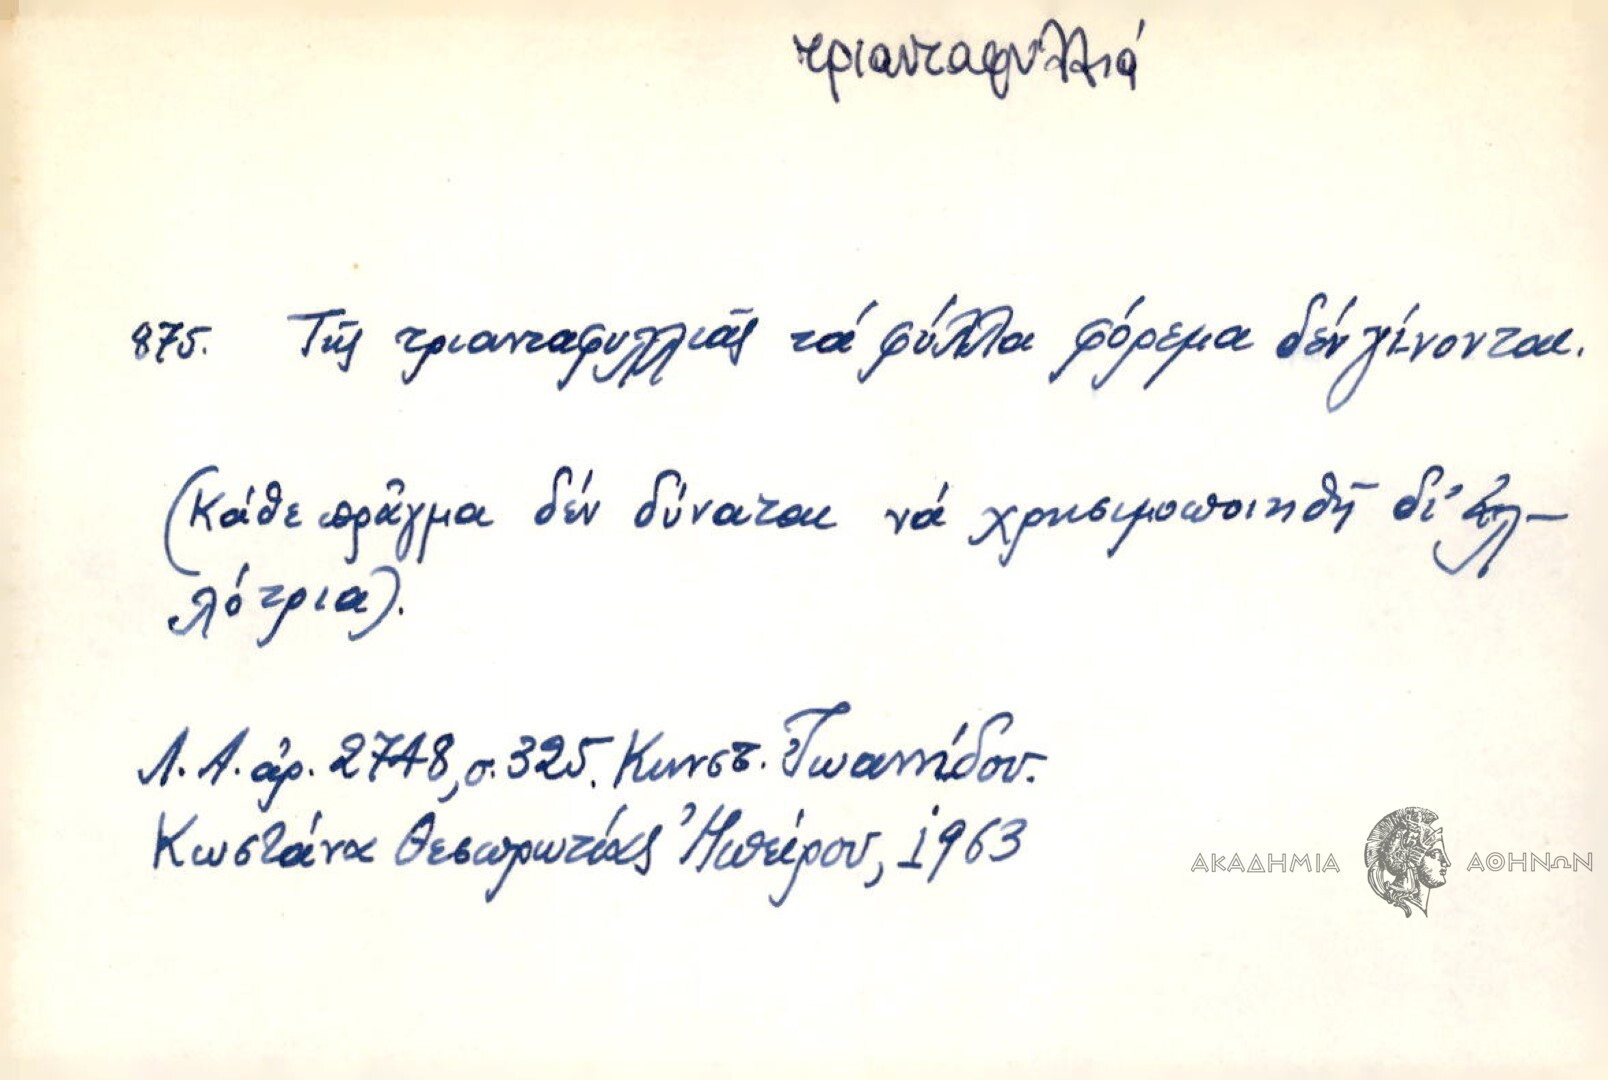 τριανταφυλλιά
875. Τῆς τριανταφυλλιᾶς τά φύλλα φόρεμα δέν γίνονται.
(Κάθε πρᾶγμα δέν δύναται νά χρησιμοποιηθῆ δι' ἀλ-
λότρια).
Λ. Α. ἀρ. 2748, σ. 325. Κωνστ. Ἰωαννίδου.
Κωστάνα Θεσπρωτίας Ἠπείρου, 1963
ΑΚΑΔΗΜΙΑ ΑΘΗΝΩΝ